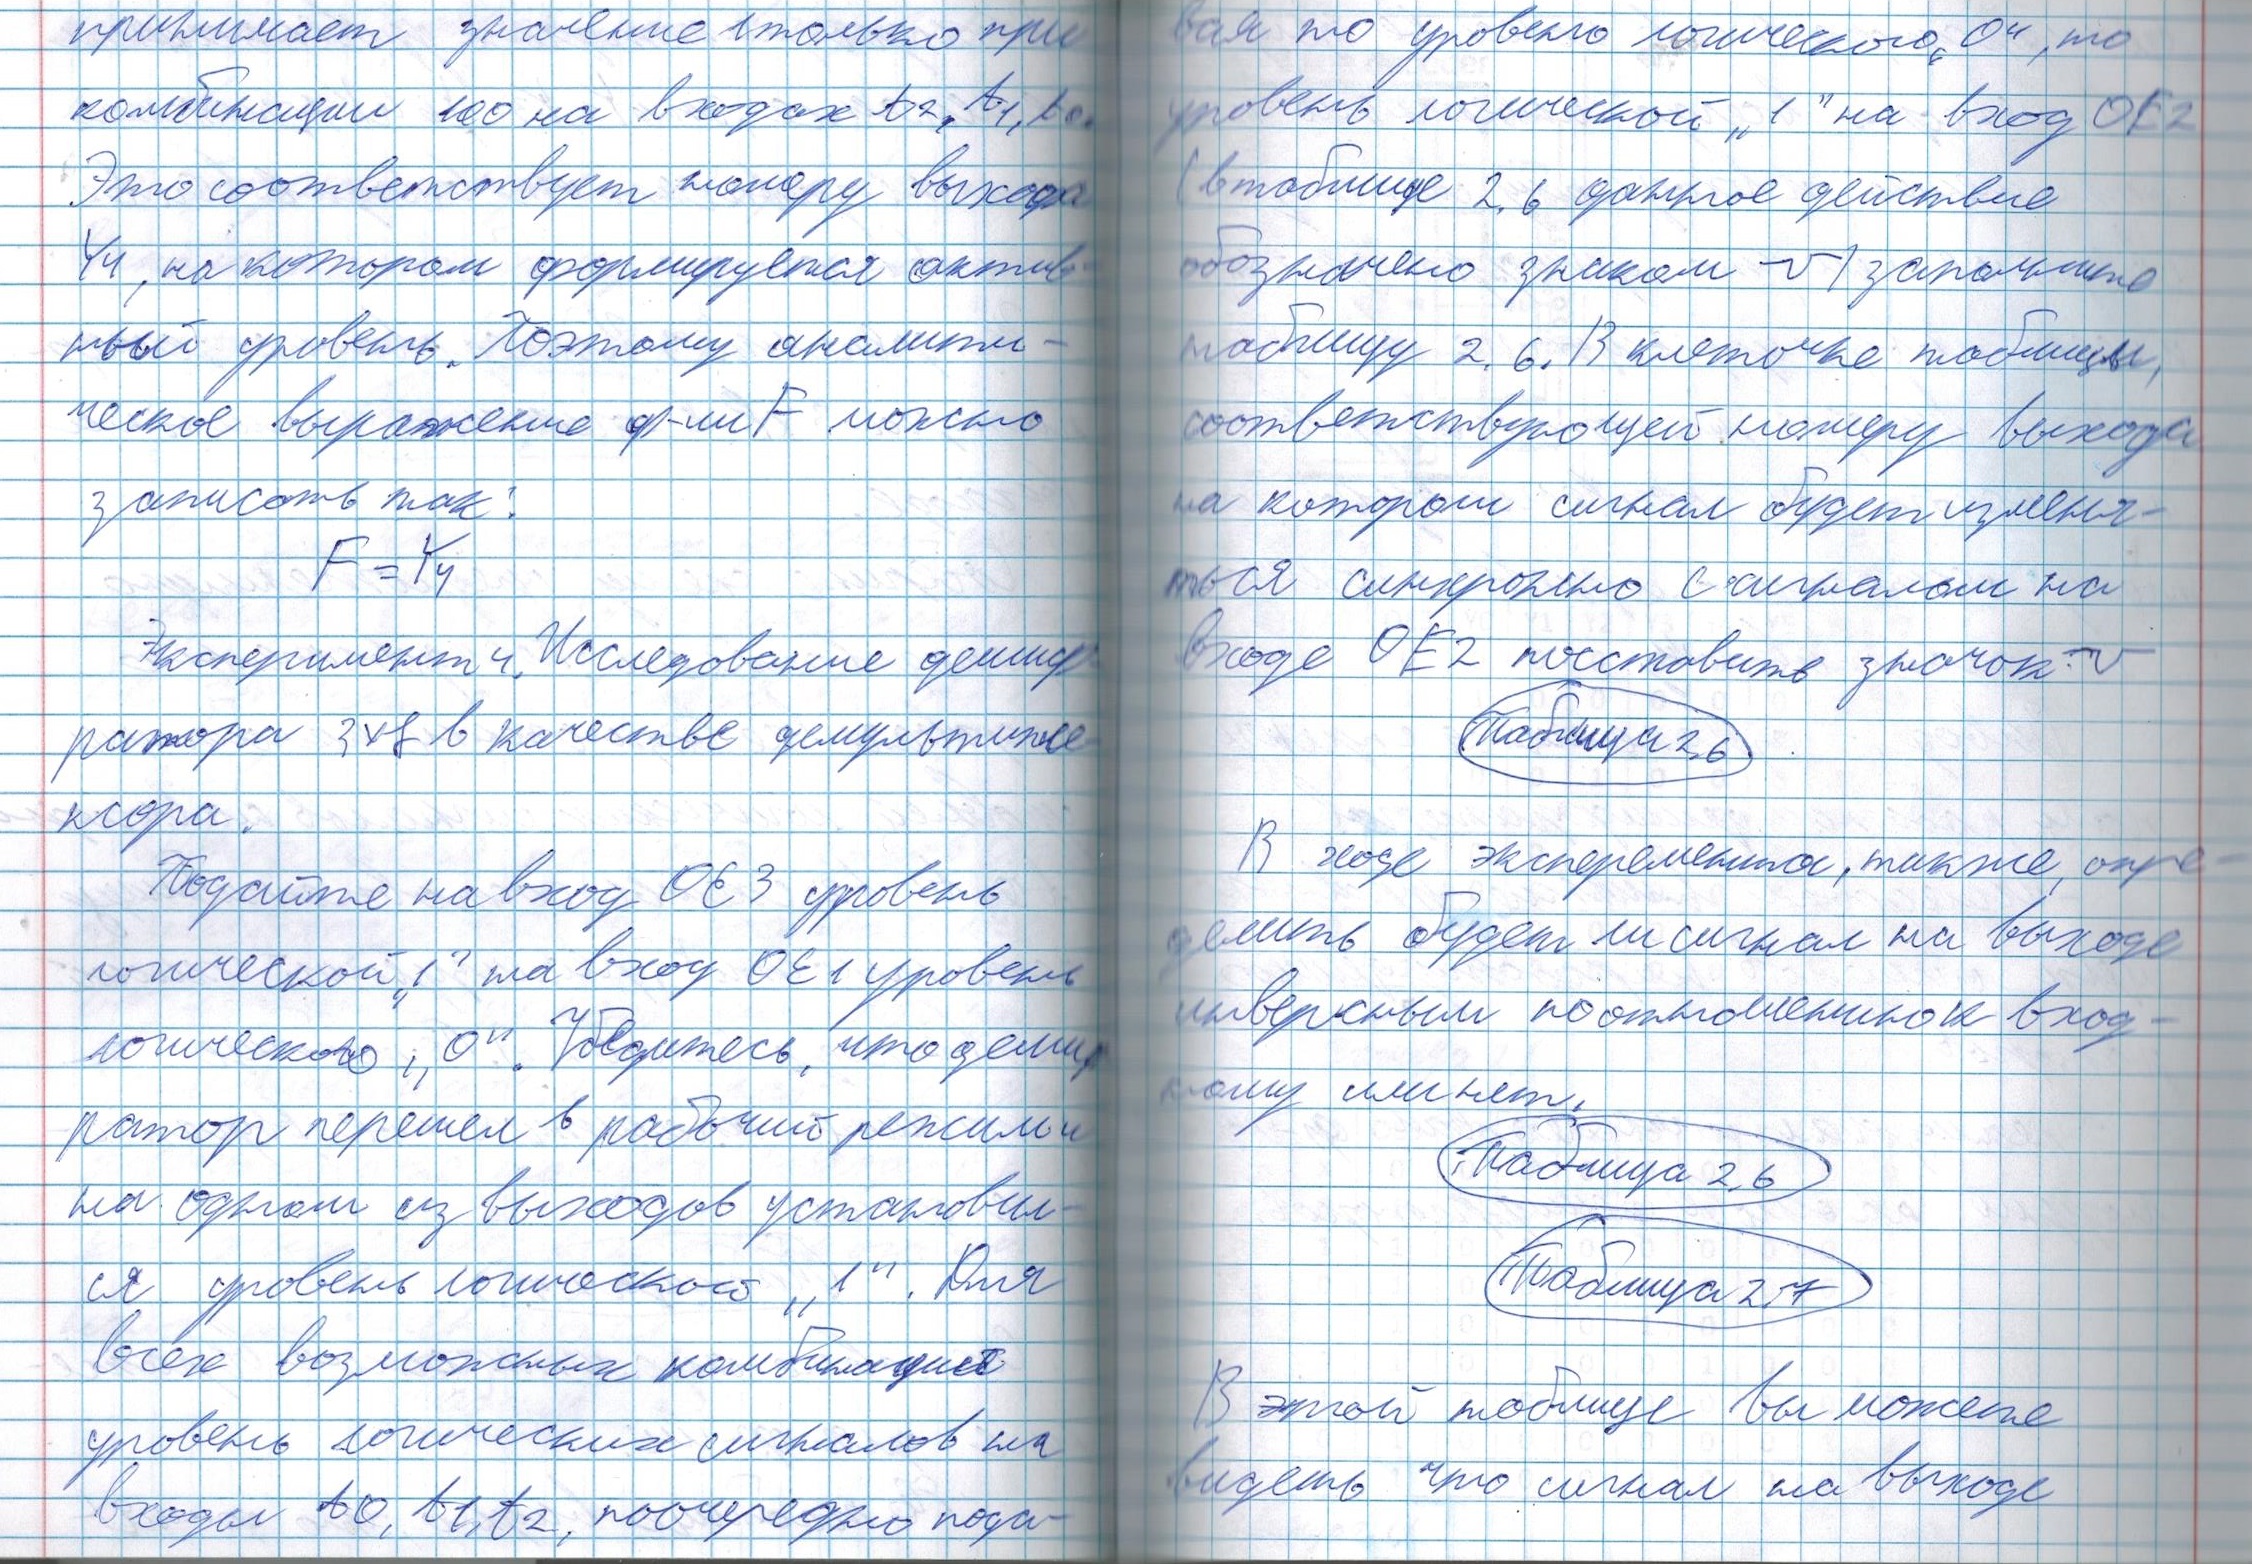 принимает значение 1 только при
комбинации 100 на входах A2, A1, A0.
Это соответствует номеру выхода
Y4, на котором формируется актив-
ный уровень. Поэтому аналити-
ческое выражение ф-ии F можно
записать так:
F = Y4
Эксперимент 4. Исследование дешиф-
ратора 3x8 в качестве демультипле-
ксора.
Подайте на вход OE3 уровень
логической „1" на вход OE1 уровень
логического „0". Убедитесь, что дешиф
ратор перешел в рабочий режим и
на одном из выходов установил-
ся уровень логической „1". Для
всех возможных комбинаций
уровень логических сигналов на
входы A0, A1, A2, поочередно пода-
вая то уровень логического „0", то
уровень логической „1" на вход OE2
(в таблице 2.6 данное действие
обозначено знаком ~v) заполните
таблицу 2.6. В клеточке таблицы,
соответствующей номеру выхода
на котором сигнал будет изменя-
ться синхронно с сигналом на
входе OE2 поставить значок ~v
Таблица 2.6
В ходе эксперемента, также, опре-
делить будет ли сигнал на выходе
инверсным по отношению к вход-
ному или нет.
Таблица 2.6
Таблица 2.7
В этой таблице вы можете
видеть что сигнал на выходе